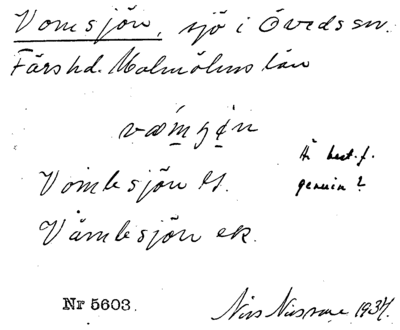 Vomsjön, sjö i Övedssn.
Färs hd. Malmöhus län
Är best. f.
Vombsjön
genuin?
Vämbsjön ek.
Nr 5603.
Nils Nilsson 1934.